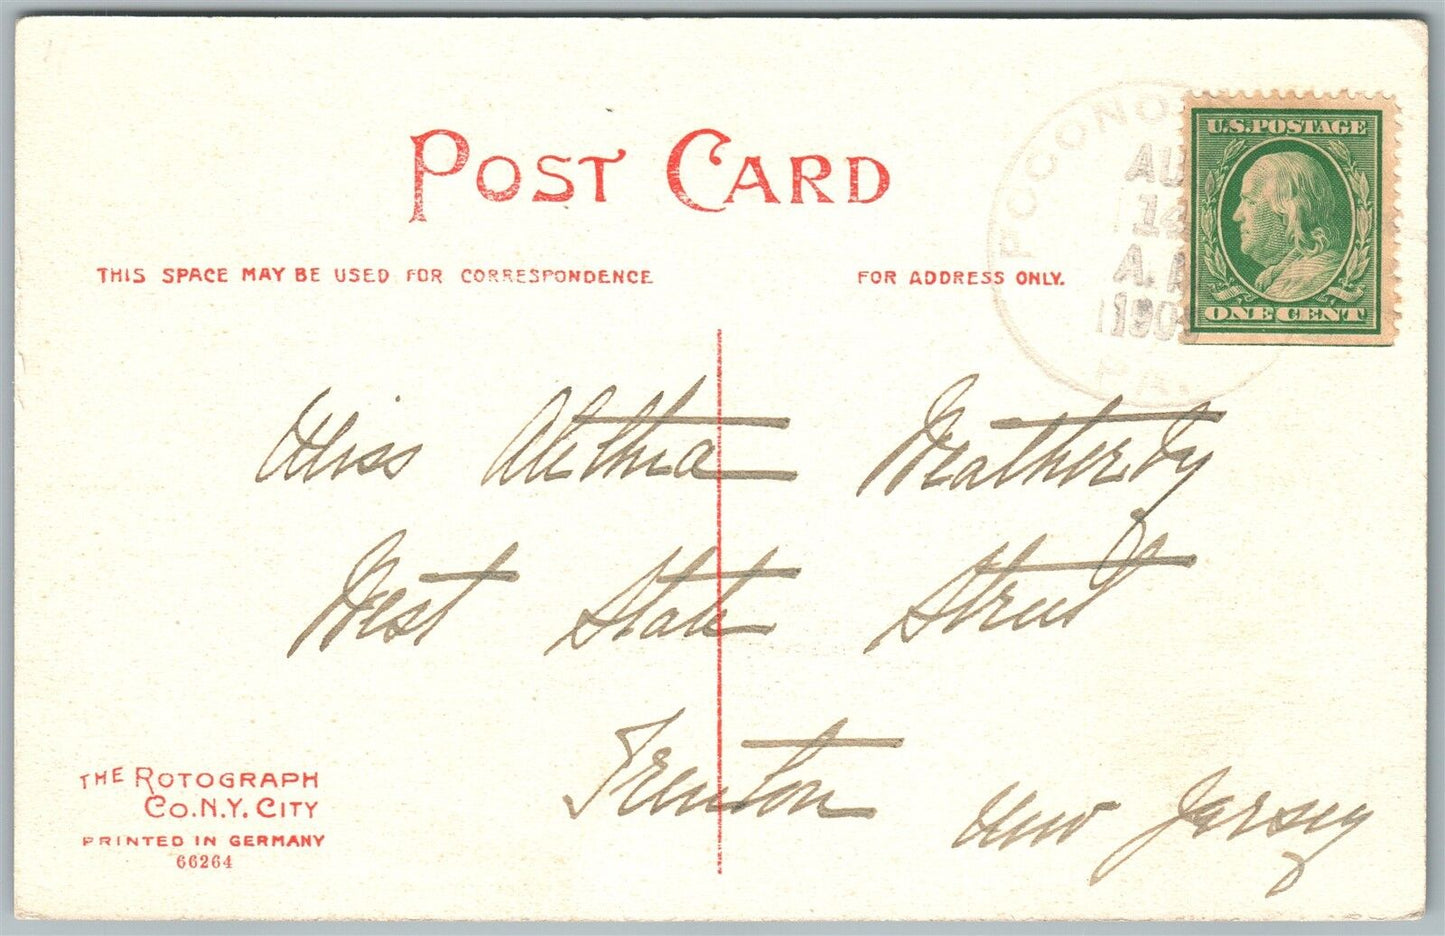 POST CARD
THIS SPACE MAY BE USED FOR CORRESPONDENCE
FOR ADDRESS ONLY.
POCONO
AU
14
A.M
190
PA.
U.S. POSTAGE
ONE CENT
Miss Alethia Weatherby
West State Street
Trenton
New Jersey
THE ROTOGRAPH
CO. N.Y. CITY
PRINTED IN GERMANY
66264